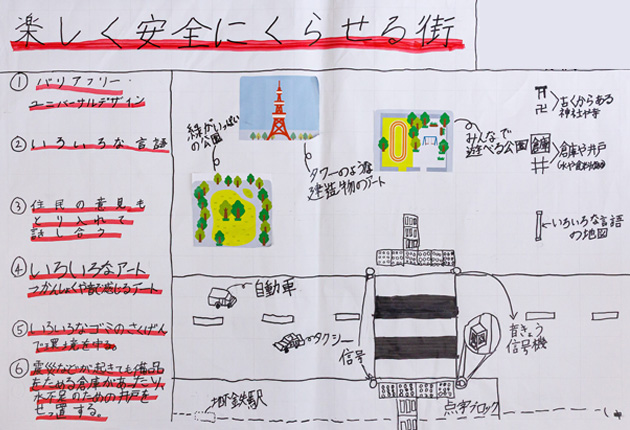 楽しく安全にくらせる街
① バリアフリー・
ユニバーサルデザイン
② いろいろな言語
③ 住民の意見も
とり入れて
話し合う
④ いろいろなアート
つかんしょくや音で感じるアート
⑤ いろいろなゴミのさくげん
で環境を守る。
⑥ 震災などが起きても備品
をためる倉庫があったり、
水不足のための井戸を
せっ置する。
緑がいっぱい
の公園
タワーのような
建造物のアート
みんなで
遊べる公園
古くからある
神社や寺
倉庫
倉庫や井戸
いろいろな言語
の地図
自動車
タクシー
信号
音きょう
信号機
地下鉄駅
点字ブロック